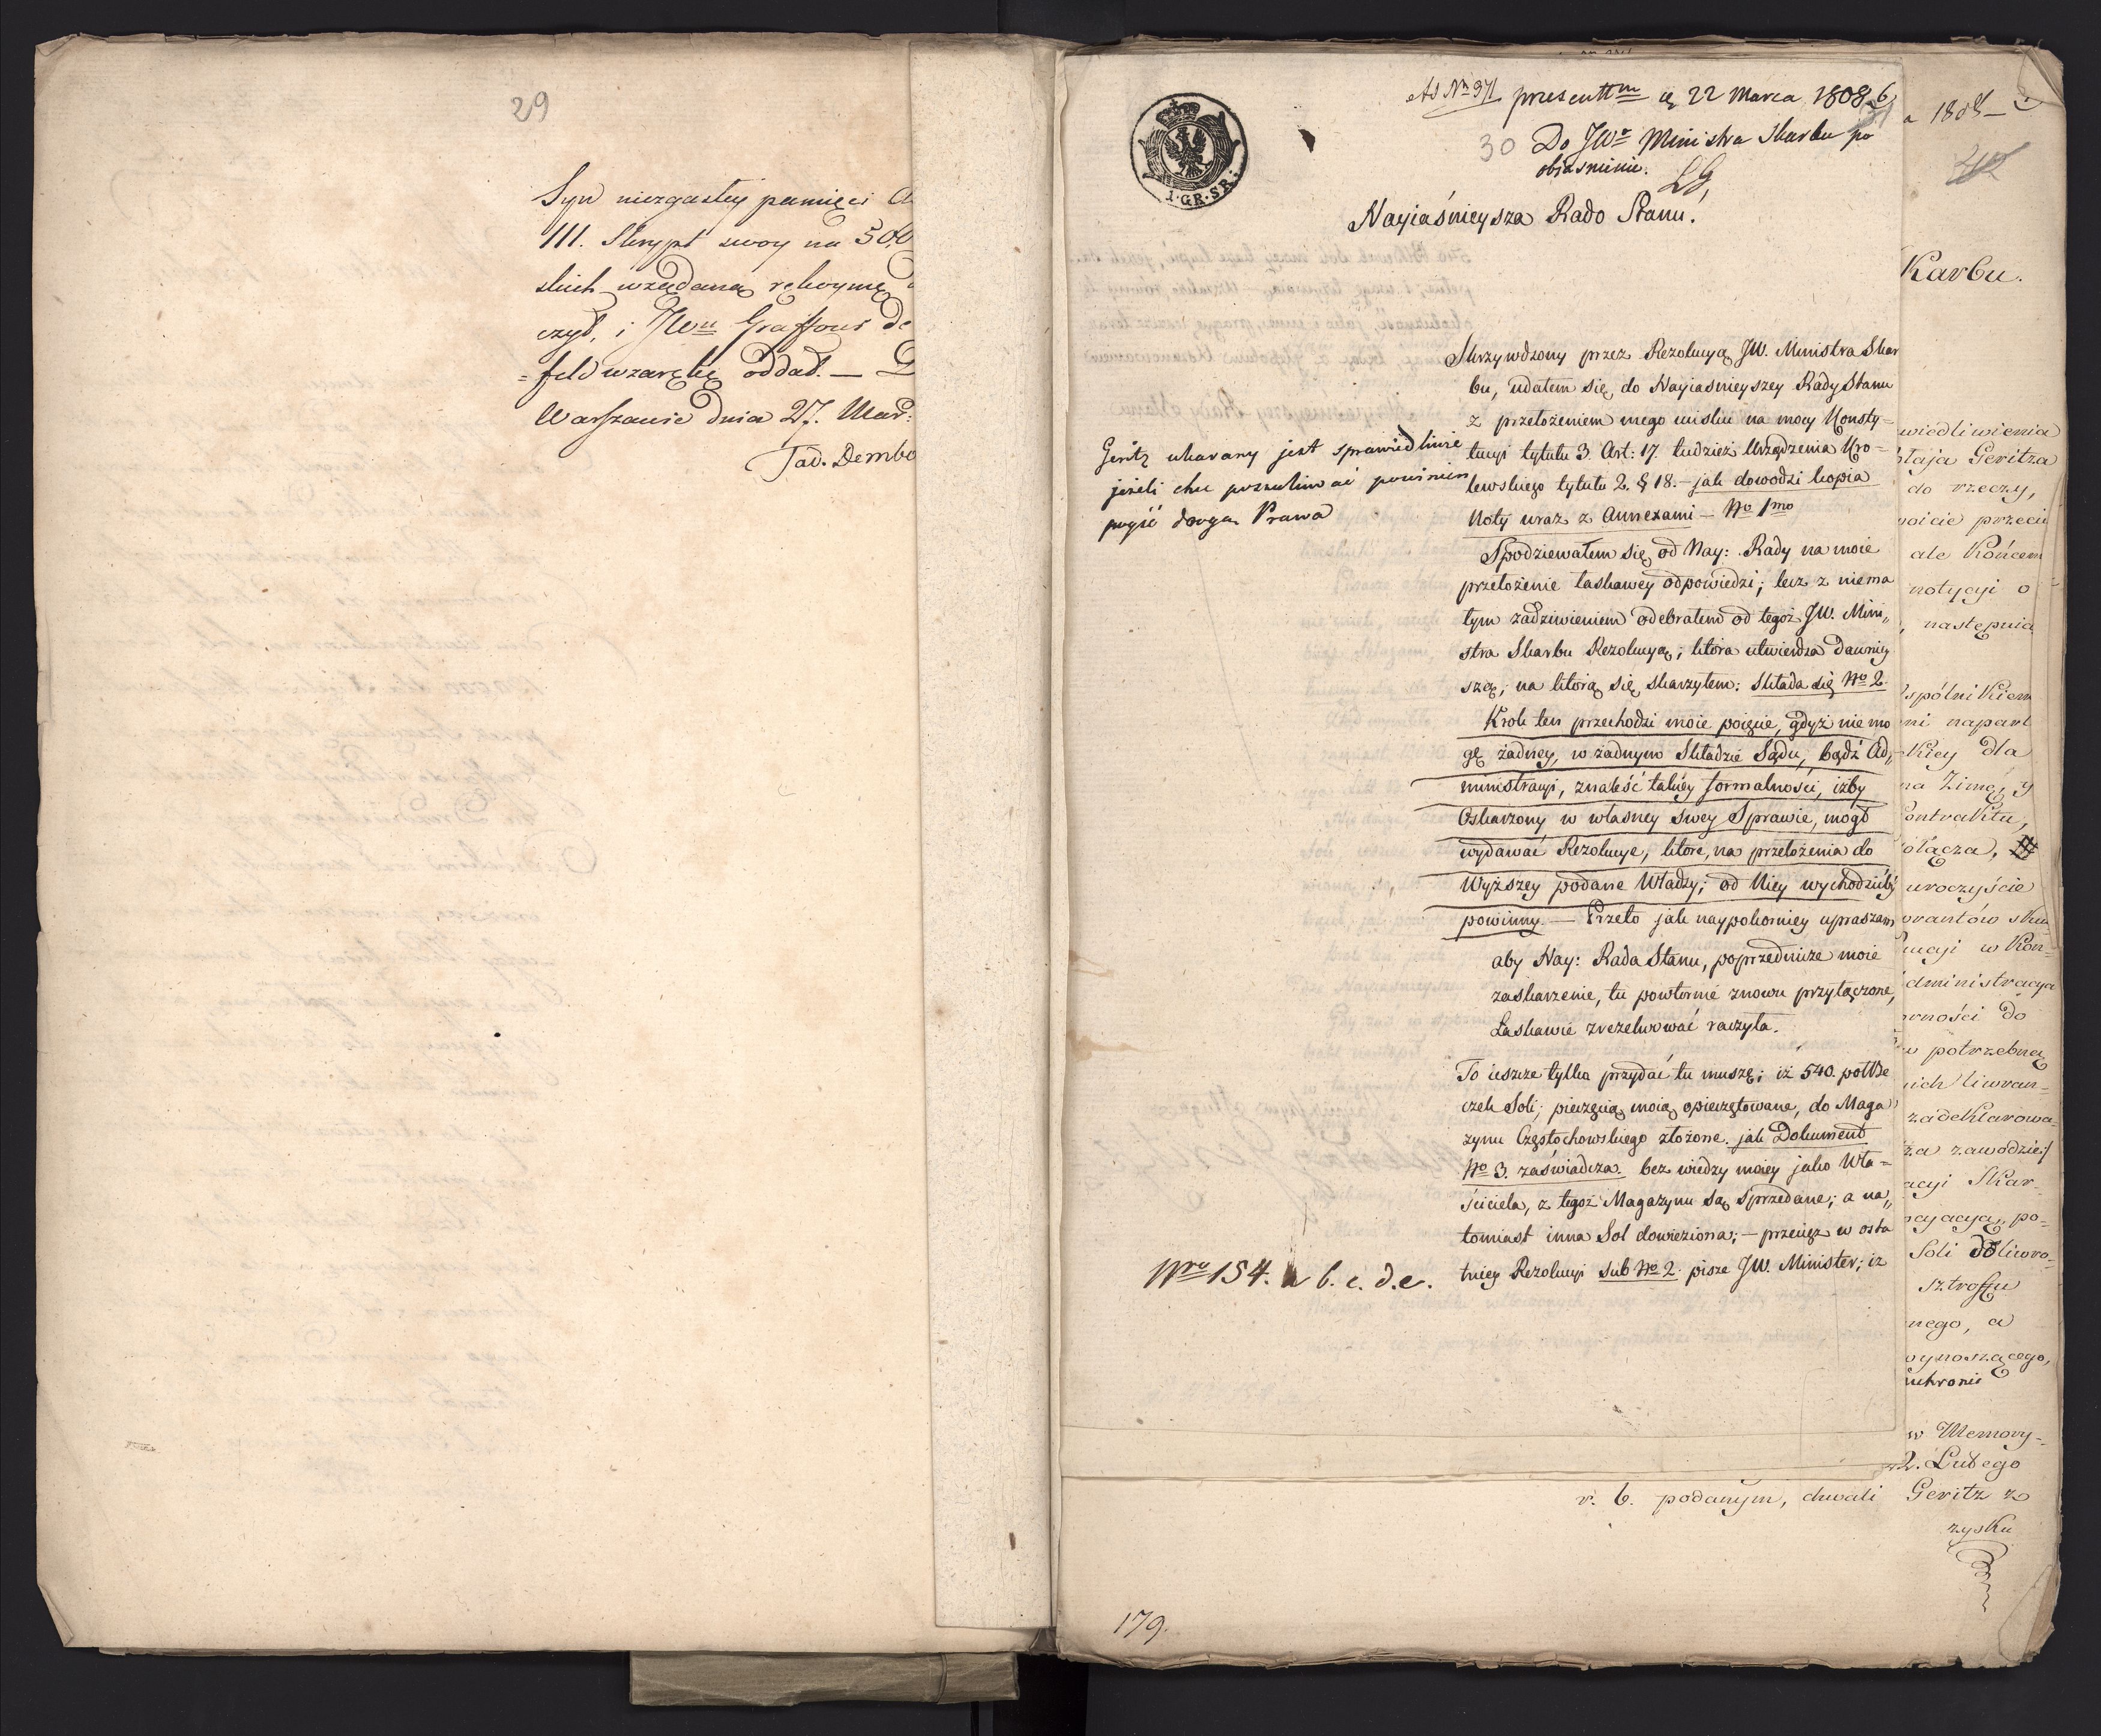 29
Syn niezgasłey pamięci A
III. Skrypt swoy na 500
skich wządaną rękoymę
czył, i JWu Graffowi de
=feld wzarękę oddał. —
Warszawie dnia 27. Mar:
Tad. Dembo
Ad No 371 presenttm d 22 Marca 1808
30 Do JWo Ministra Skarbu po
obiasnienie.
LG
1·GR·SR:
Nayiaśnieysza Rado Stanu!
Skrzywdzony przez Rezolucyą JW. Ministra Skar
bu, udałem się, do Nayiasnieyszey Rady Stanu
z przełożeniem mego ucisku na mocy Konsty=
tucyi tytułu 3. Art: 17. tudzież Urządzenia Kro=
lewskiego tytułu 2. § 18. — jak dowodzi kopia
Noty wraz z Annexami — No 1mo
Geritz ukarany jest sprawiedliwie
jeżeli chce poszukiwać powinien
pogść drogą Prawa
Spodziewałem się, od Nay: Rady na moie
przełożenie łaskawey odpowiedzi; lecz z niema
łym zadziwieniem odebrałem od tegoż JW. Mini„
stra Skarbu Rezolucyą; która utwierdza dawniey
szą; na którą się skarżyłem: Składa się No 2.
Krok ten przechodzi moie poięcie, gdyż nie mo
gę żadney, w żadnym Składzie Sądu, bądź Ad„
ministracyi, znaleść takiey formalności, iżby
Oskarzony w własney swey Sprawie, mógł
wydawać Rezolucye, które, na przełożenia do
Wyższey podane Władzy; od Niey wychodzićby
powinny. — Przeto jak naypokorniey upraszam
aby Nay: Rada Stanu, poprzednicze moie
zaskarzenie, tu powtórnie znowu przyłączone,
Łaskawie zrezolwować raczyła.
To ieszcze tylko przydać tu muszę; iż 540. połbe
czek Soli; pieczęcią moią opieczętowane, do Maga
zynu Częstochowskiego złożone. jak Dokument
No 3. zaświadcza. bez wiedzy moiey jako Wła=
ściciela, z tegoż Magazynu są sprzedane; a na„
tomiast inna Sol dowieziona; — przeciez w osta
tniey Rezolucyi sub No 2. pisze JW. Minister; iż
Nro 154. a b. c. d. e.
179.
r. b. podanym, chwali Geritz z
zysku
a 1808 —
Karbu.
wiedliwienia
łaja Geritza
do rzeczy,
woicie przeciw
ale Końcem
notycyi o
, następnia
spólnikiem
ni napart
Kiey dla
na Zimę, y
Contraktu,
ołącza,
uroczyście
wrantów sku
ucyi w Kon=
dministracya
wności do
w potrzebną
nich liwran=
zadeklarowa
za zawodzie
acyi Skar=
ocyacyą, po=
Soli doliwro=
sztraffu
nego, a
wynoszącego,
uchronić
w Memory=
2. Lutego